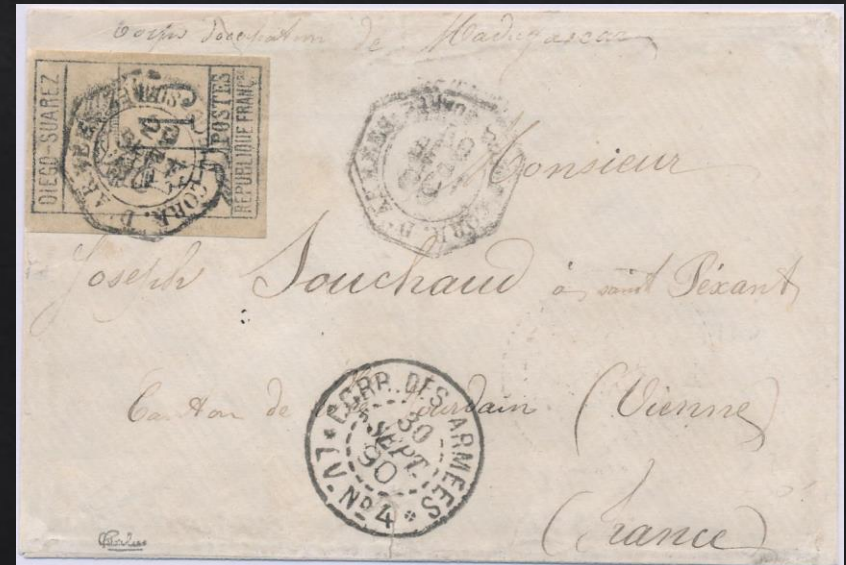 Corps d'occupation de Madagascar
DIEGO-SUAREZ
15
POSTES
REPUBLIQUE FRANÇSE
CORR. D'ARMEES
CORR. D'ARMEES
Monsieur
Joseph Souchaud à saint Péxant
Canton de Jourdain (Vienne)
CORR. DES ARMEES
30
SEPT.
90
LV. No 4
(France)